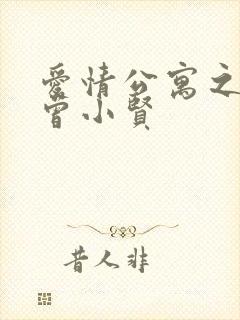 愛情公寓之
曾小賢
昔人非